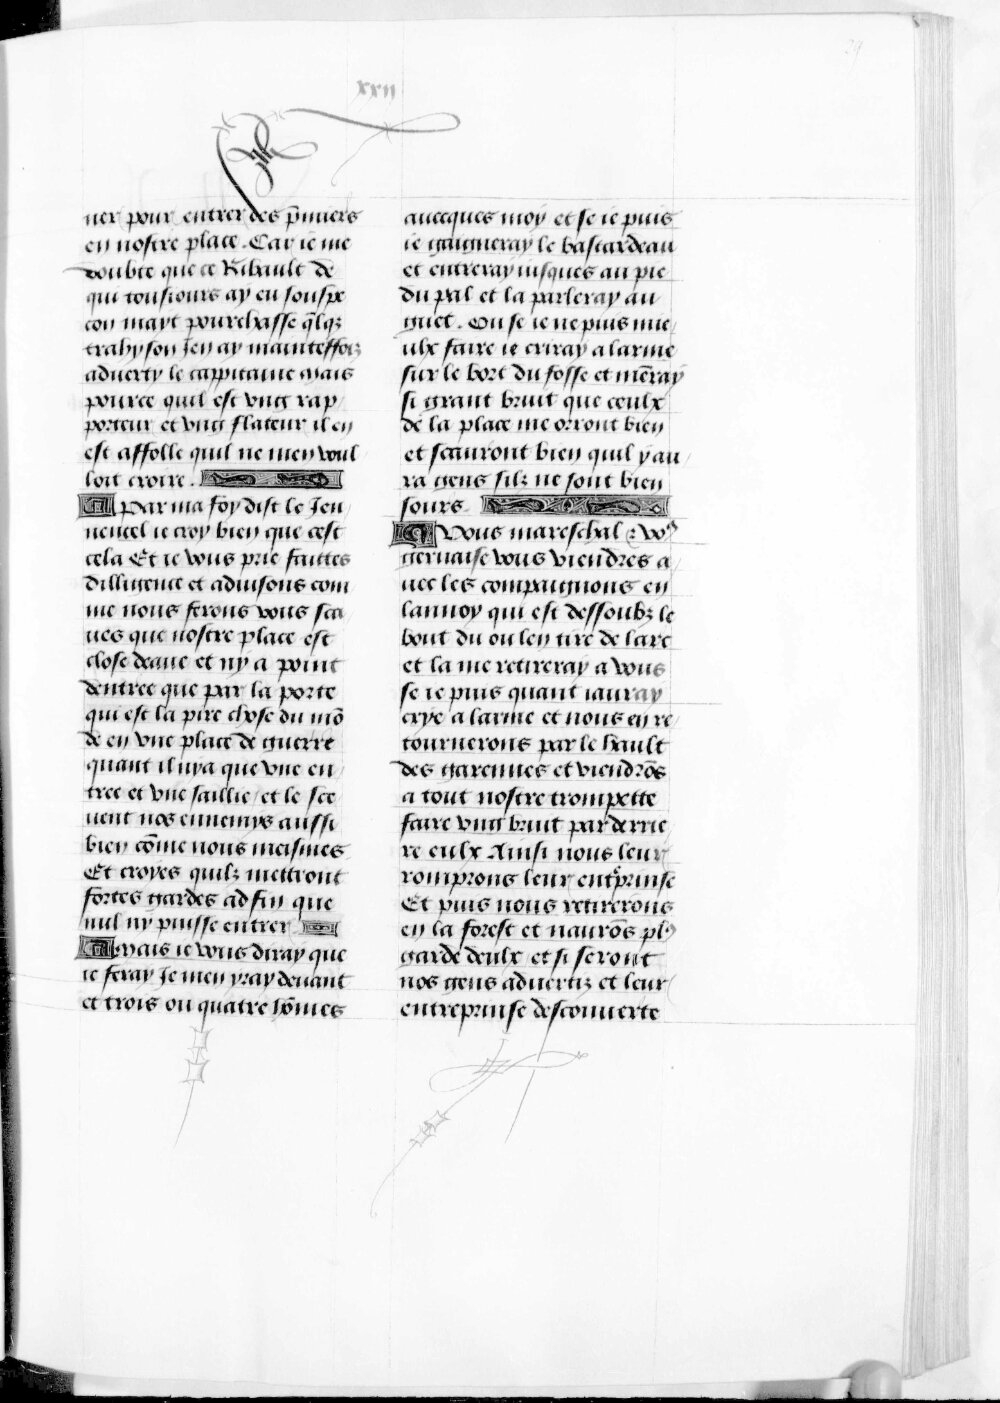 29
xxii
ner pour entrer des p̄miers
en nostre place. Car ie me
doubte que ce Ribault de
qui tousiours ay eu souspe
con mayt pourchasse q̄lq3
trahyson Jen ay mainteffoiz
aduerty le cappitaine Mais
pource quil est vng rap
porteur et vng flateur il en
est affolle quil ne men voul
loit croire.
Par ma foy dist le Jeu
nencel ie croy bien que cest
cela Et ie vous prie faittes
dilligence et aduisons com
me nous ferons vous sca
ues que nostre place est
close deaue et ny a point
dentree que par la porte
qui est la pire chose du mō
de en vne place de guerre
quant il nya que vne en
tree et vne saillie et le sce
uent nos ennemys aussi
bien cōme nous meismes
Et croyes quilz mettront
fortes gardes ad fin que
nul ny puisse entrer
Mais ie vous diray que
ie feray Je men yray deuant
et trois ou quatre hōmes
auecques moy et se ie puis
ie gaigneray le bastardeau
et entreray iusques au pie
du pal et la parleray au
guet. Ou se ie ne puis mie
ulx faire ie criray a larme
sur le bort du fosse et mēray
si grant bruit que ceulx
de la place me orront bien
et scauront bien quil y au
ra gens silz ne sont bien
sours.
Vous mareschal & voꝰ
geruaise vous viendres a
uec les compaignons en
lannoy qui est dessoubz le
bout du ou len tire de larc
et la me retireray a vous
se ie puis quant iauray
crye a larme et nous en re
tournerons par le hault
des garennes et viendrōs
a tout nostre trompette
faire vng bruit par derrie
re eulx Ainsi nous leur
romprons leur ent̾prinse
Et puis nous retirerons
en la forest et naurōs plꝰ
garde deulx et si seront
nos gens aduertiz et leur
entreprinse descouuerte